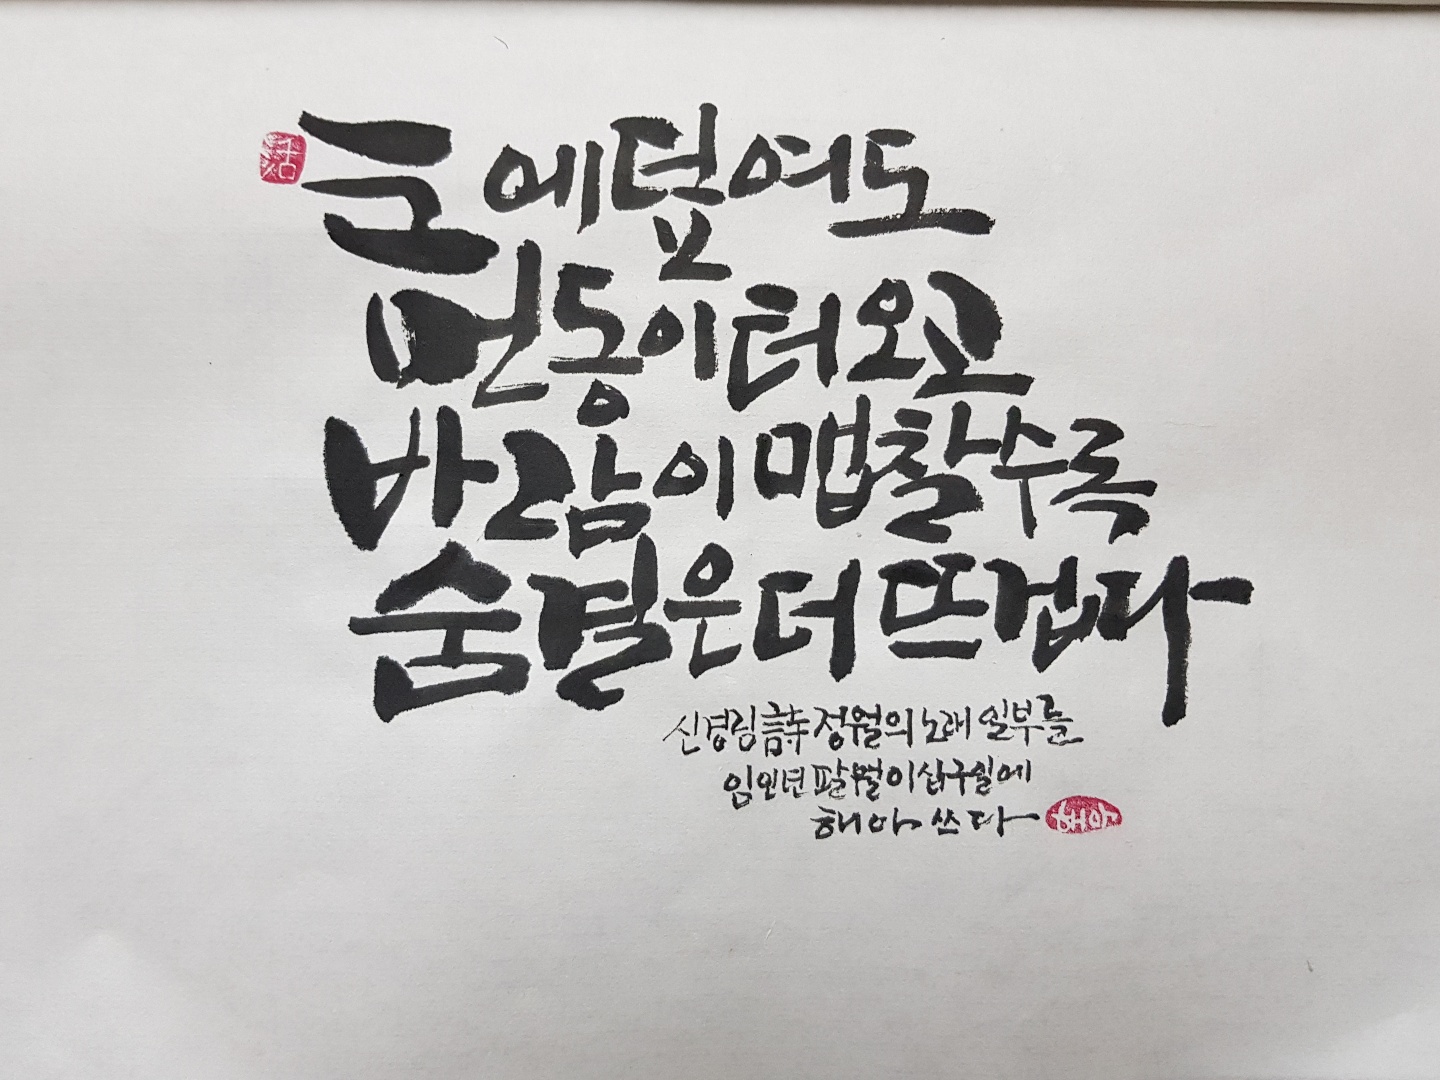 活
눈에 덮여도
먼동이 터오고
바람이 맵찰수록
숨결은 더 뜨겁다
신경림 詩 정월의 노래 일부를
임인년 팔월 이십구일에
해아 쓰다 해아